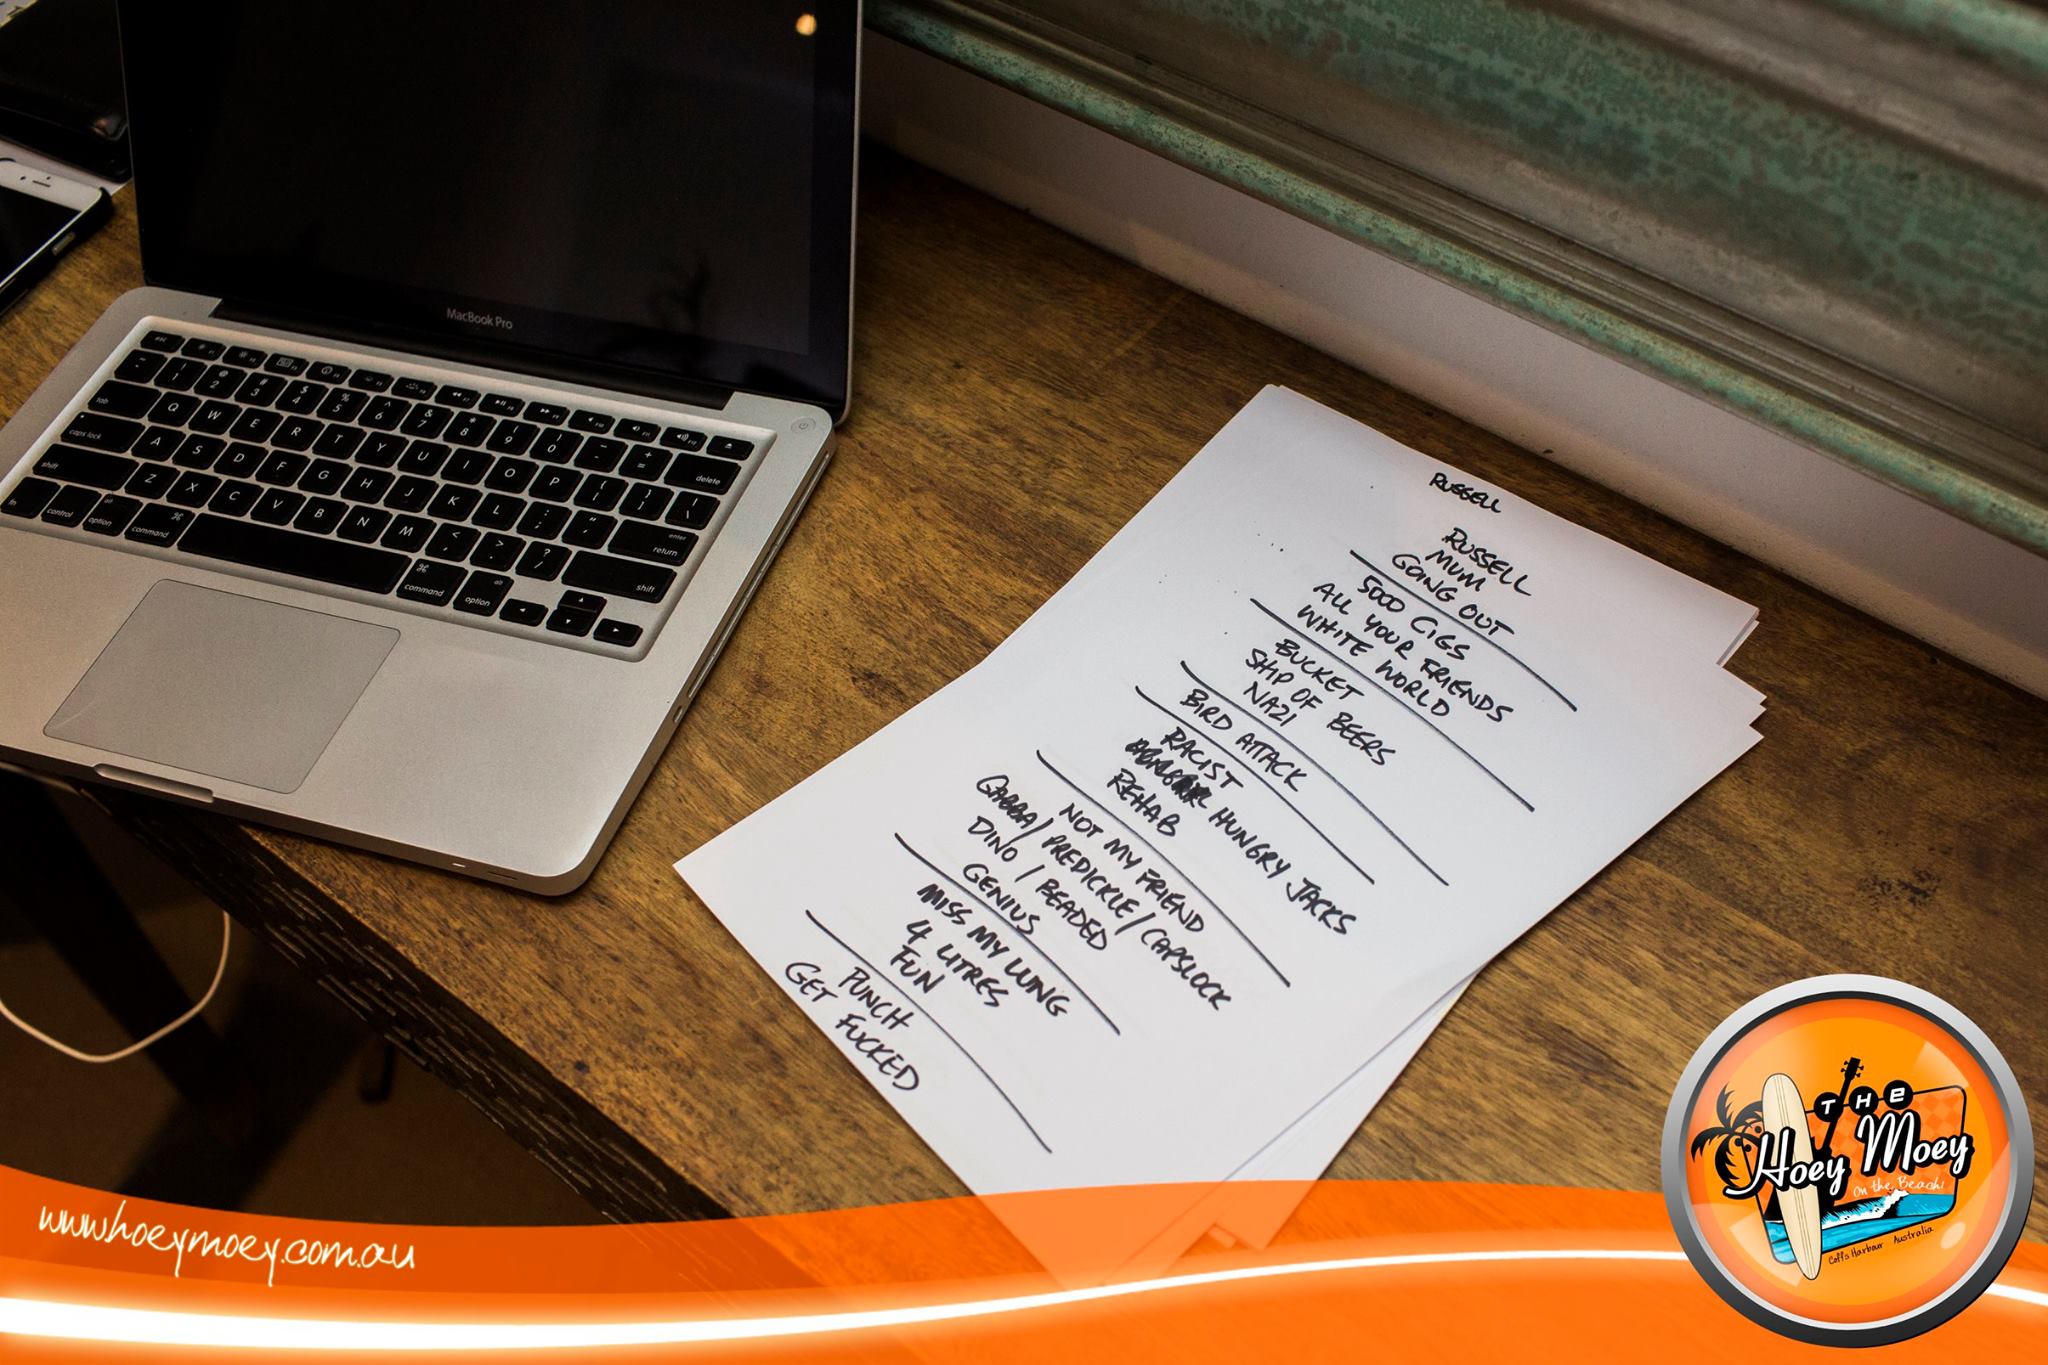 MacBook Pro
RUSSELL
RUSSELL
MUM
GOING OUT
5000 CIGS
ALL YOUR FRIENDS
WHITE WORLD
BUCKET
SHIP OF BEERS
NAZI
BIRD ATTACK
RACIST
HUNGRY JACKS
REHAB
NOT MY FRIEND
GABBA/PREDICKLE/CAPSLOCK
DINO/BEADED
GENIUS
MISS MY LUNG
4 LITRES
FUN
PUNCH
GET FUCKED
esc
tab Q W E R T Y U I O P
caps lock A S D F G H J K L
shift Z X C V B N M shift
fn control option command command option
delete
enter
return
www.hoeymoey.com.au
THE
Hoey Moey
On the Beach!
Coffs Harbour Australia